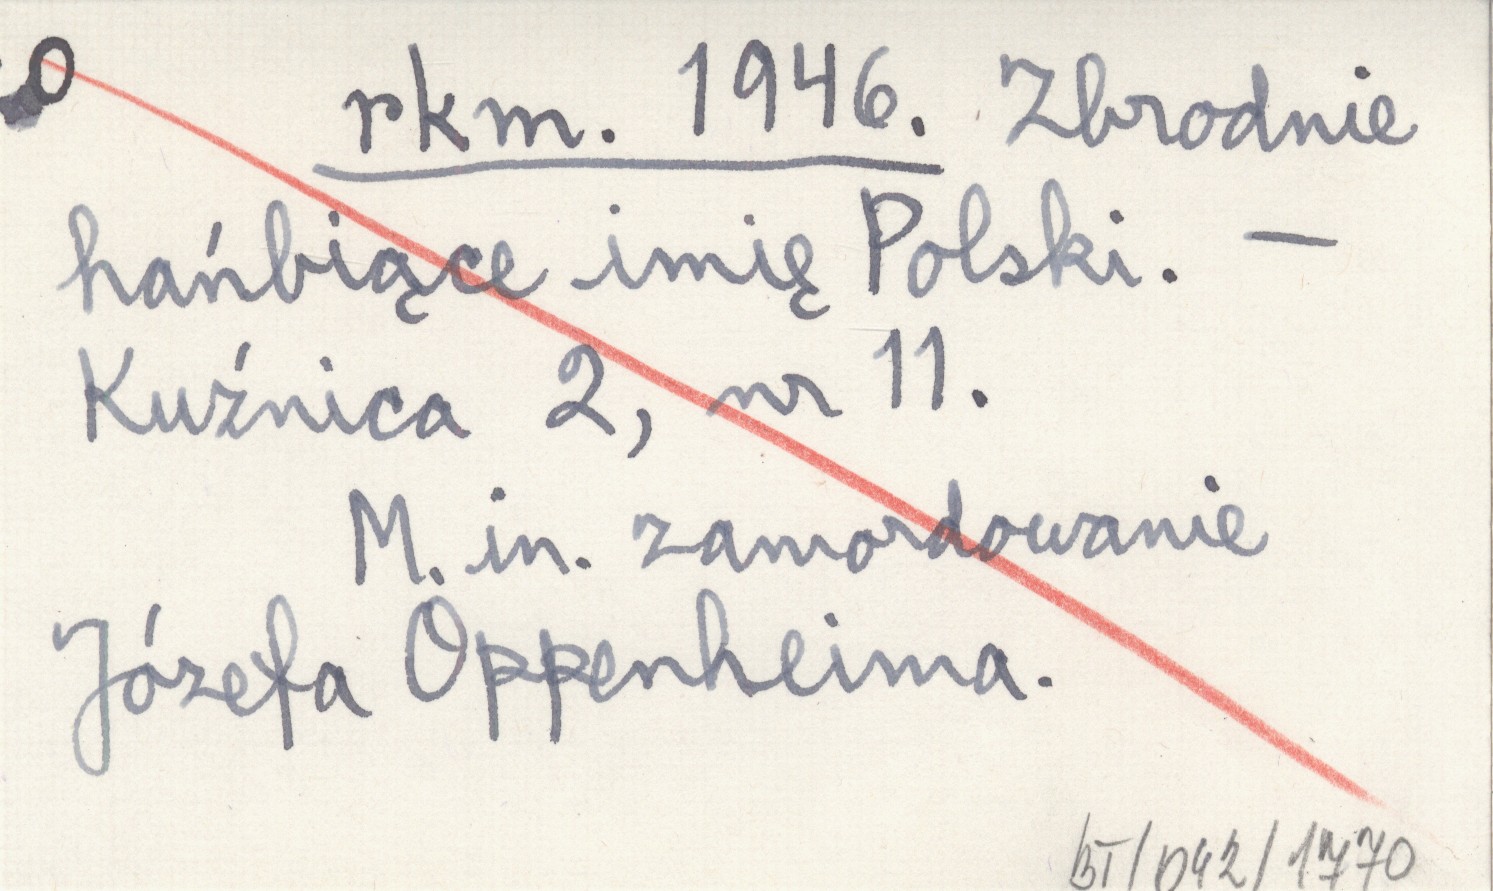 rkm. 1946. Zbrodnie
hańbiące imię Polski. —
Kuźnica 2, nr 11.
M. in. zamordowanie
Józefa Oppenheima.
BT/042/1770